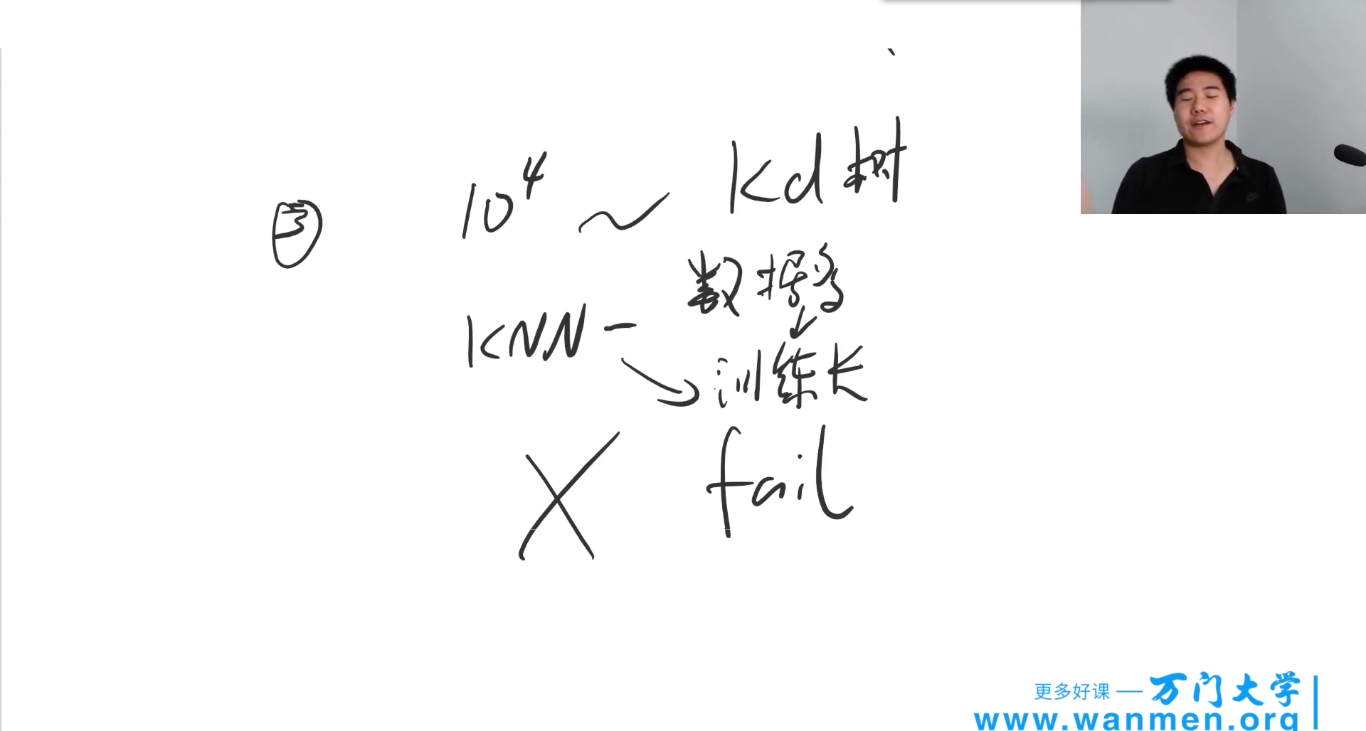 ③ 10⁴ ~ kd树
数据多
KNN - → 训练长
X fail
更多好课 — 万门大学
www.wanmen.org